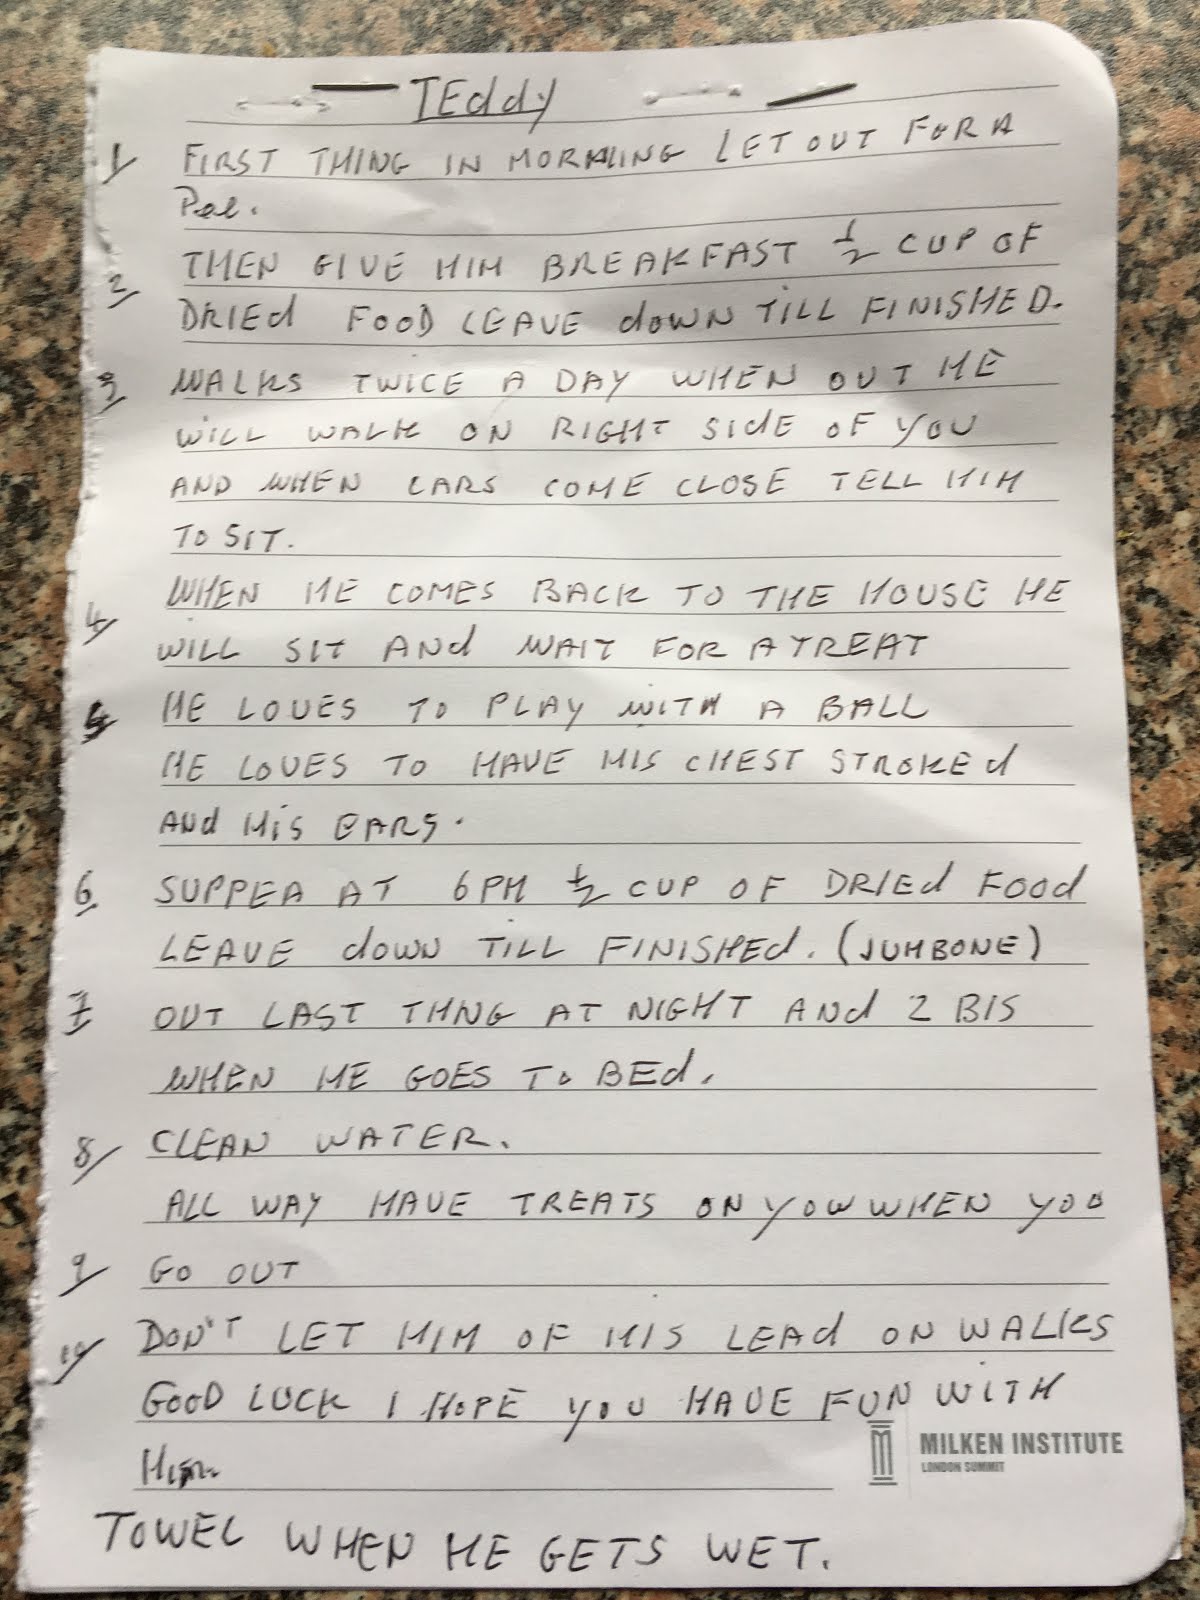 TEddy
1/ FIRST THING IN MORNING LET OUT FOR A
Pee.
2/ THEN GIVE HIM BREAKFAST ½ CUP OF
DRIEd FOOD LEAVE doWN TILL FINISHED.
3/ WALKS TWICE A DAY WHEN OUT HE
WILL WALK ON RIGHT SIdE OF YOU
AND WHEN CARS COME CLOSE TELL HIM
TO SIT.
4/ WHEN HE COMES BACK TO THE HOUSE HE
WILL SIT ANd WAIT FOR A TREAT
5/ HE LOVES TO PLAY WITH A BALL
HE LOVES TO HAVE HIS CHEST STROKEd
ANd HiS EARS.
6/ SUPPER AT 6PM ½ CUP OF DRIEd FOOd
LEAVE doWN TILL FINISHEd. (JUMBONE)
7/ OUT LAST THNG AT NIGHT ANd 2 BIS
WHEN HE GOES TO BEd.
8/ CLEAN WATER.
ALL WAY HAVE TREATS ON YOW WHEN YOU
9/ GO OUT
10/ DON'T LET HIM OF HIS LEAd ON WALKS
GOOD LUCK I HOPE YOU HAVE FUN WITH
HIM.
MILKEN INSTITUTE
LONDON SUMMIT
TOWEL WHEN HE GETS WET.